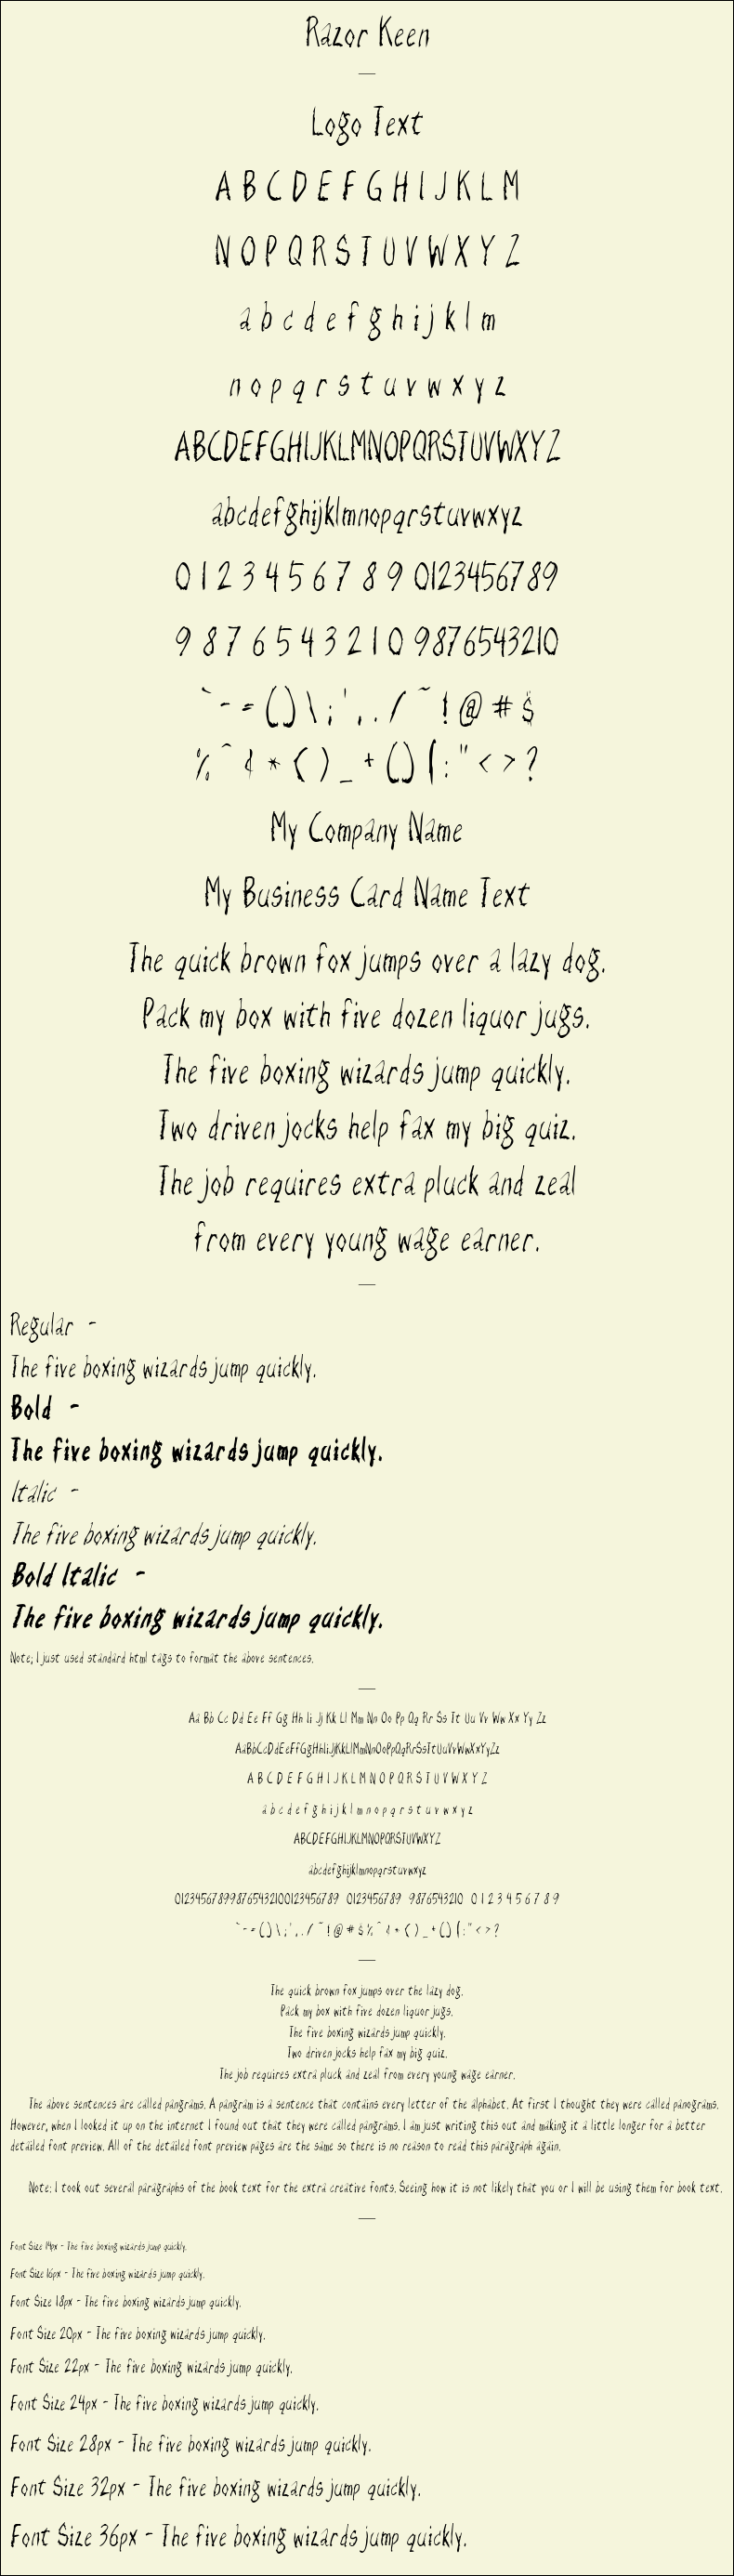 Razor Keen
Logo Text
A B C D E F G H I J K L M
N O P Q R S T U V W X Y Z
a b c d e f g h i j k l m
n o p q r s t u v w x y z
ABCDEFGHIJKLMNOPQRSTUVWXYZ
abcdefghijklmnopqrstuvwxyz
0 1 2 3 4 5 6 7 8 9 0123456789
9 8 7 6 5 4 3 2 1 0 9876543210
` - = ( ) \ ; ' , . / ~ ! @ # $
% ^ & * ( ) _ + ( ) | : " < > ?
My Company Name
My Business Card Name Text
The quick brown fox jumps over a lazy dog.
Pack my box with five dozen liquor jugs.
The five boxing wizards jump quickly.
Two driven jocks help fax my big quiz.
The job requires extra pluck and zeal
from every young wage earner.
Regular -
The five boxing wizards jump quickly.
Bold -
The five boxing wizards jump quickly.
Italic -
The five boxing wizards jump quickly.
Bold Italic -
The five boxing wizards jump quickly.
Note; I just used standard html tags to format the above sentences.
Aa Bb Cc Dd Ee Ff Gg Hh Ii Jj Kk Ll Mm Nn Oo Pp Qq Rr Ss Tt Uu Vv Ww Xx Yy Zz
AaBbCcDdEeFfGgHhIiJjKkLlMmNnOoPpQqRrSsTtUuVvWwXxYyZz
A B C D E F G H I J K L M N O P Q R S T U V W X Y Z
a b c d e f g h i j k l m n o p q r s t u v w x y z
ABCDEFGHIJKLMNOPQRSTUVWXYZ
abcdefghijklmnopqrstuvwxyz
012345678998765432100123456789 0123456789 9876543210 0 1 2 3 4 5 6 7 8 9
` - = ( ) \ ; ' , . / ~ ! @ # $ % ^ & * ( ) _ + ( ) | : " < > ?
The quick brown fox jumps over the lazy dog.
Pack my box with five dozen liquor jugs.
The five boxing wizards jump quickly.
Two driven jocks help fax my big quiz.
The job requires extra pluck and zeal from every young wage earner.
The above sentences are called pangrams. A pangram is a sentence that contains every letter of the alphabet. At first I thought they were called panograms.
However, when I looked it up on the internet I found out that they were called pangrams. I am just writing this out and making it a little longer for a better
detailed font preview. All of the detailed font preview pages are the same so there is no reason to read this paragraph again.
Note: I took out several paragraphs of the book text for the extra creative fonts. Seeing how it is not likely that you or I will be using them for book text.
Font Size 14px - The five boxing wizards jump quickly.
Font Size 16px - The five boxing wizards jump quickly.
Font Size 18px - The five boxing wizards jump quickly.
Font Size 20px - The five boxing wizards jump quickly.
Font Size 22px - The five boxing wizards jump quickly.
Font Size 24px - The five boxing wizards jump quickly.
Font Size 28px - The five boxing wizards jump quickly.
Font Size 32px - The five boxing wizards jump quickly.
Font Size 36px - The five boxing wizards jump quickly.